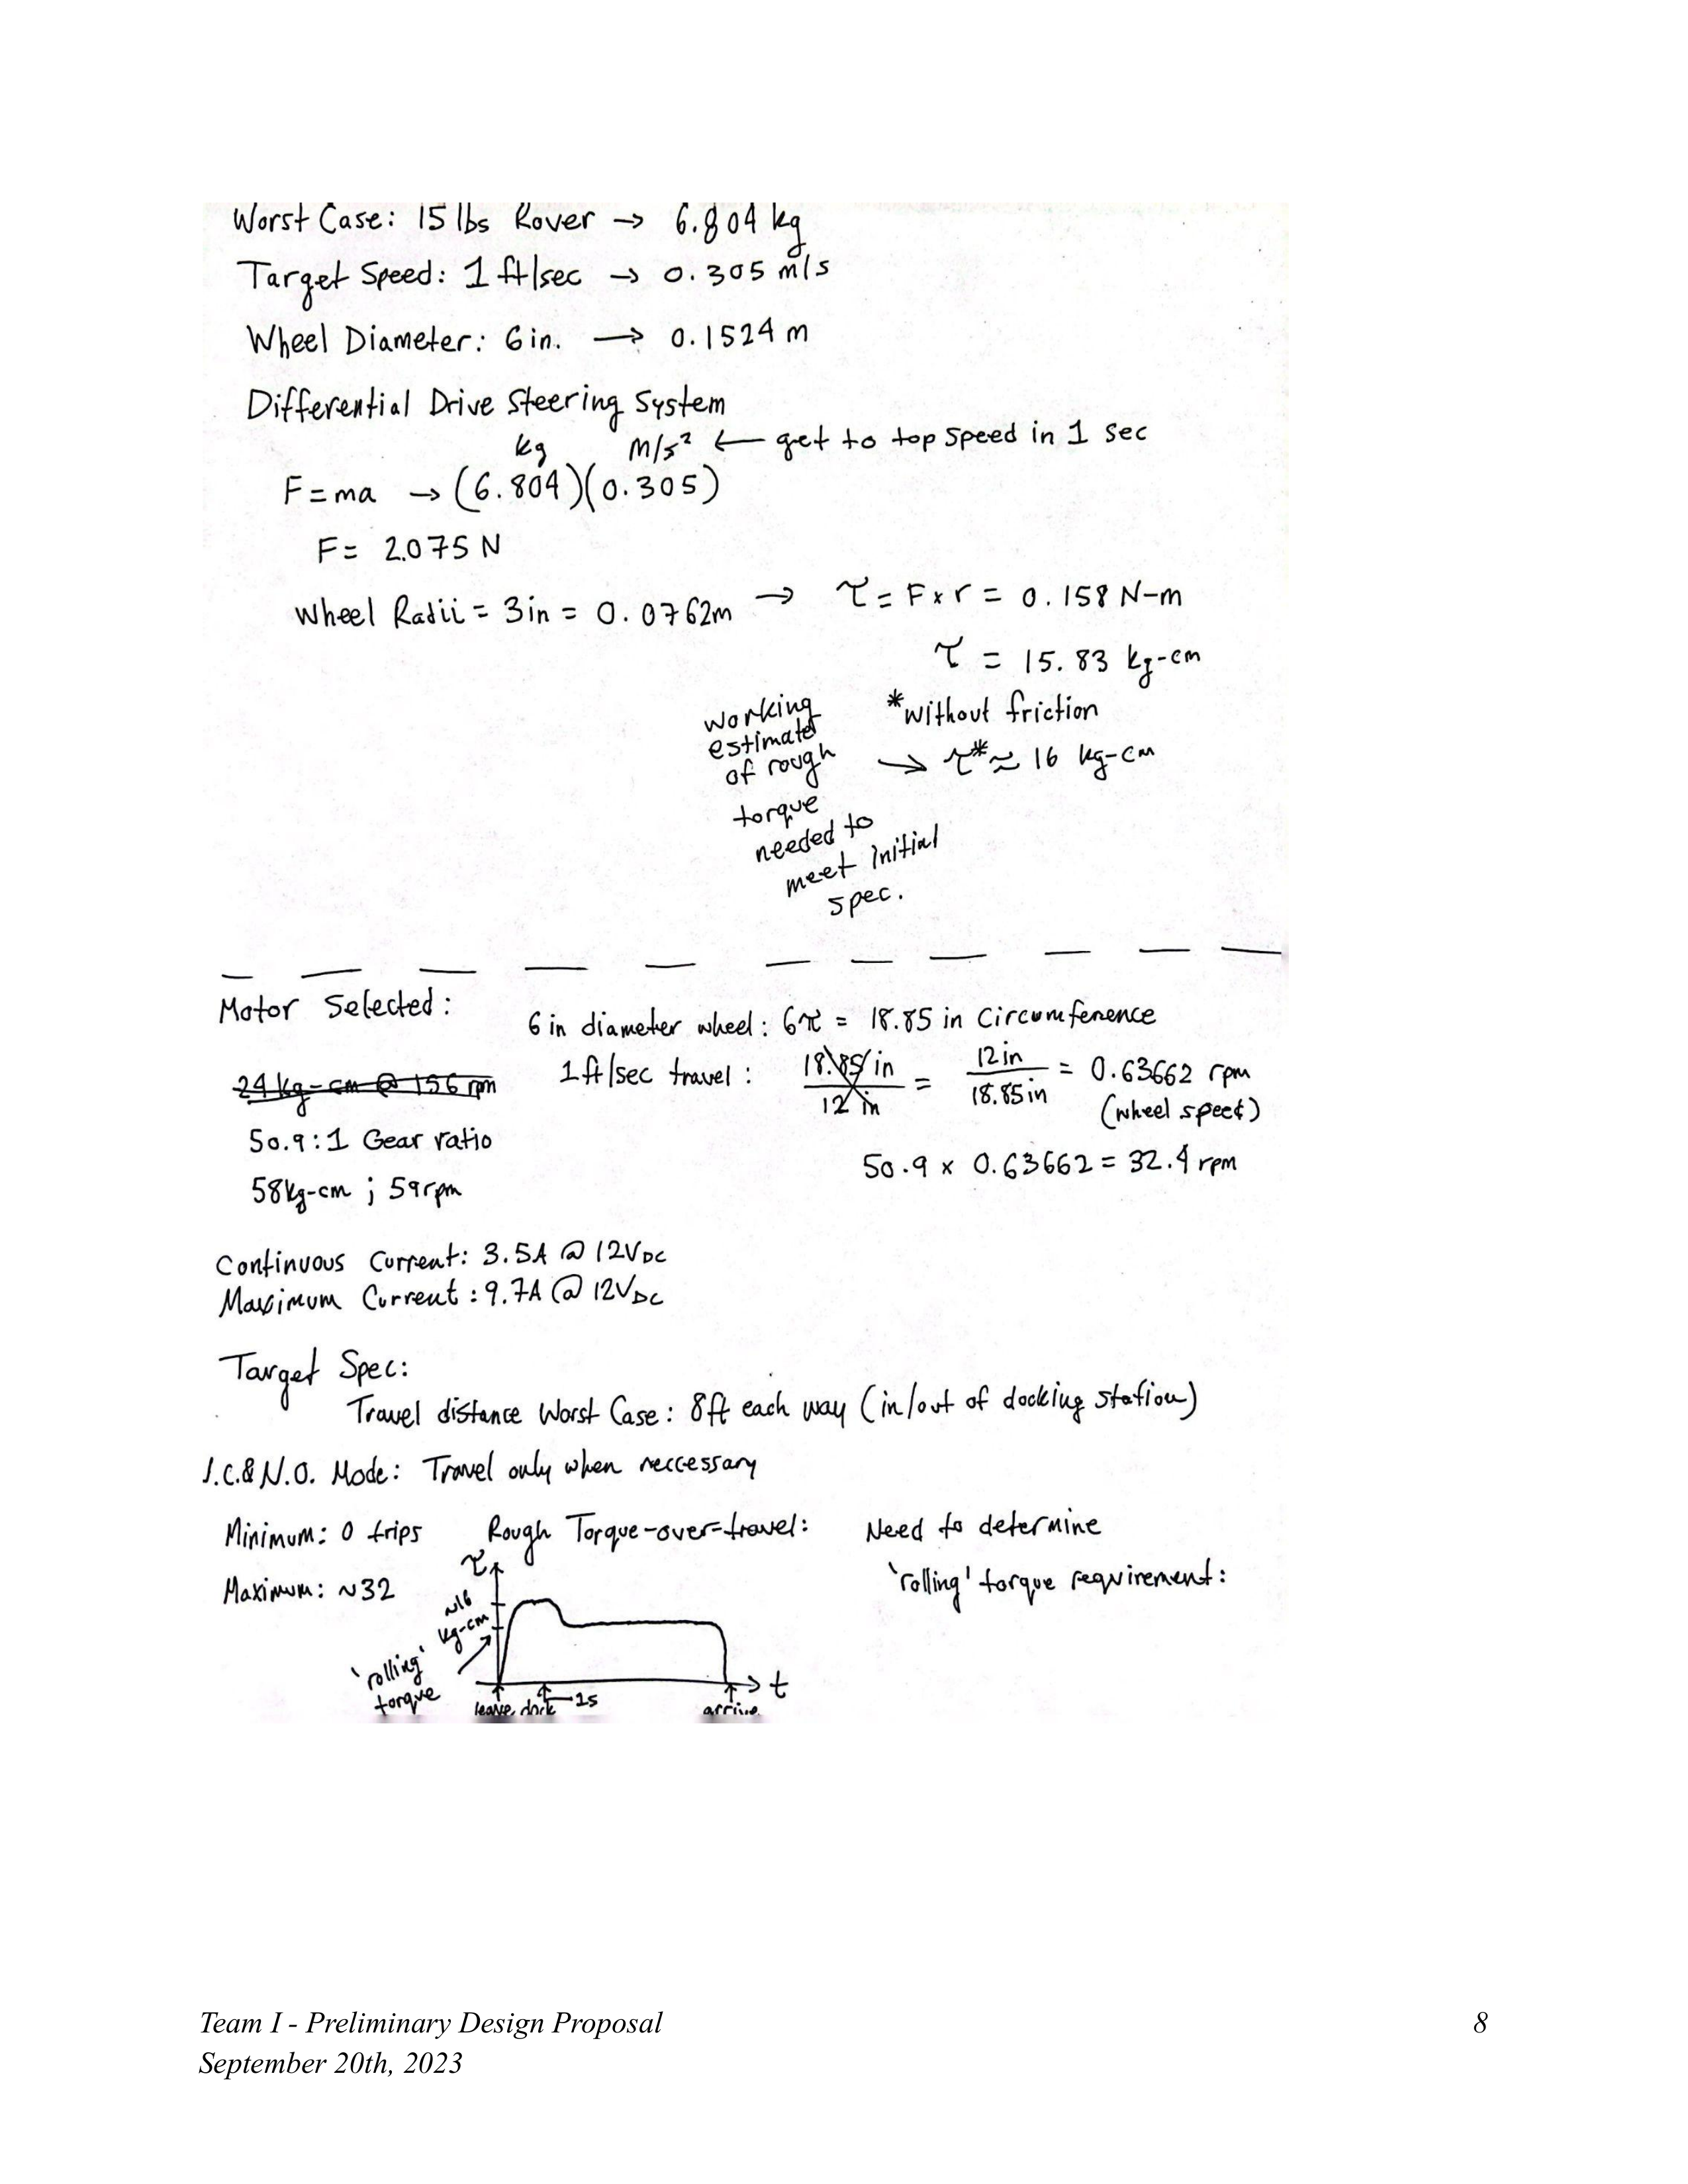 Worst Case: 15 lbs Rover → 6.804 kg
Target Speed: 1 ft/sec → 0.305 m/s
Wheel Diameter: 6 in. → 0.1524 m
Differential Drive Steering System
kg m/s² ← get to top speed in 1 sec
F = ma → (6.804)(0.305)
F = 2.075 N
Wheel Radii = 3in = 0.0762m → τ = F × r = 0.158 N-m
τ = 15.83 kg-cm
*without friction
→ τ* ≈ 16 kg-cm
working
estimated
of rough
torque
needed to
meet initial
spec.
Motor Selected:
6 in diameter wheel: 6π = 18.85 in Circumference
24 kg-cm @ 156 rpm
1 ft/sec travel: 18.85 in / 12 in = 12 in / 18.85 in = 0.63662 rpm
(wheel speed)
50.9:1 Gear ratio
50.9 × 0.63662 = 32.4 rpm
58kg-cm ; 59rpm
Continuous Current: 3.5A @ 12VDC
Maximum Current: 9.7A @ 12VDC
Target Spec:
Travel distance Worst Case: 8ft each way (in/out of docking station)
J.C.& N.O. Mode: Travel only when neccessary
Minimum: 0 trips
Maximum: ~32
Rough Torque-over-travel:
τ
~16
kg-cm
'rolling'
torque
leave dock
1s
arrive
t
Need to determine
'rolling' torque requirement:
Team I - Preliminary Design Proposal
8
September 20th, 2023